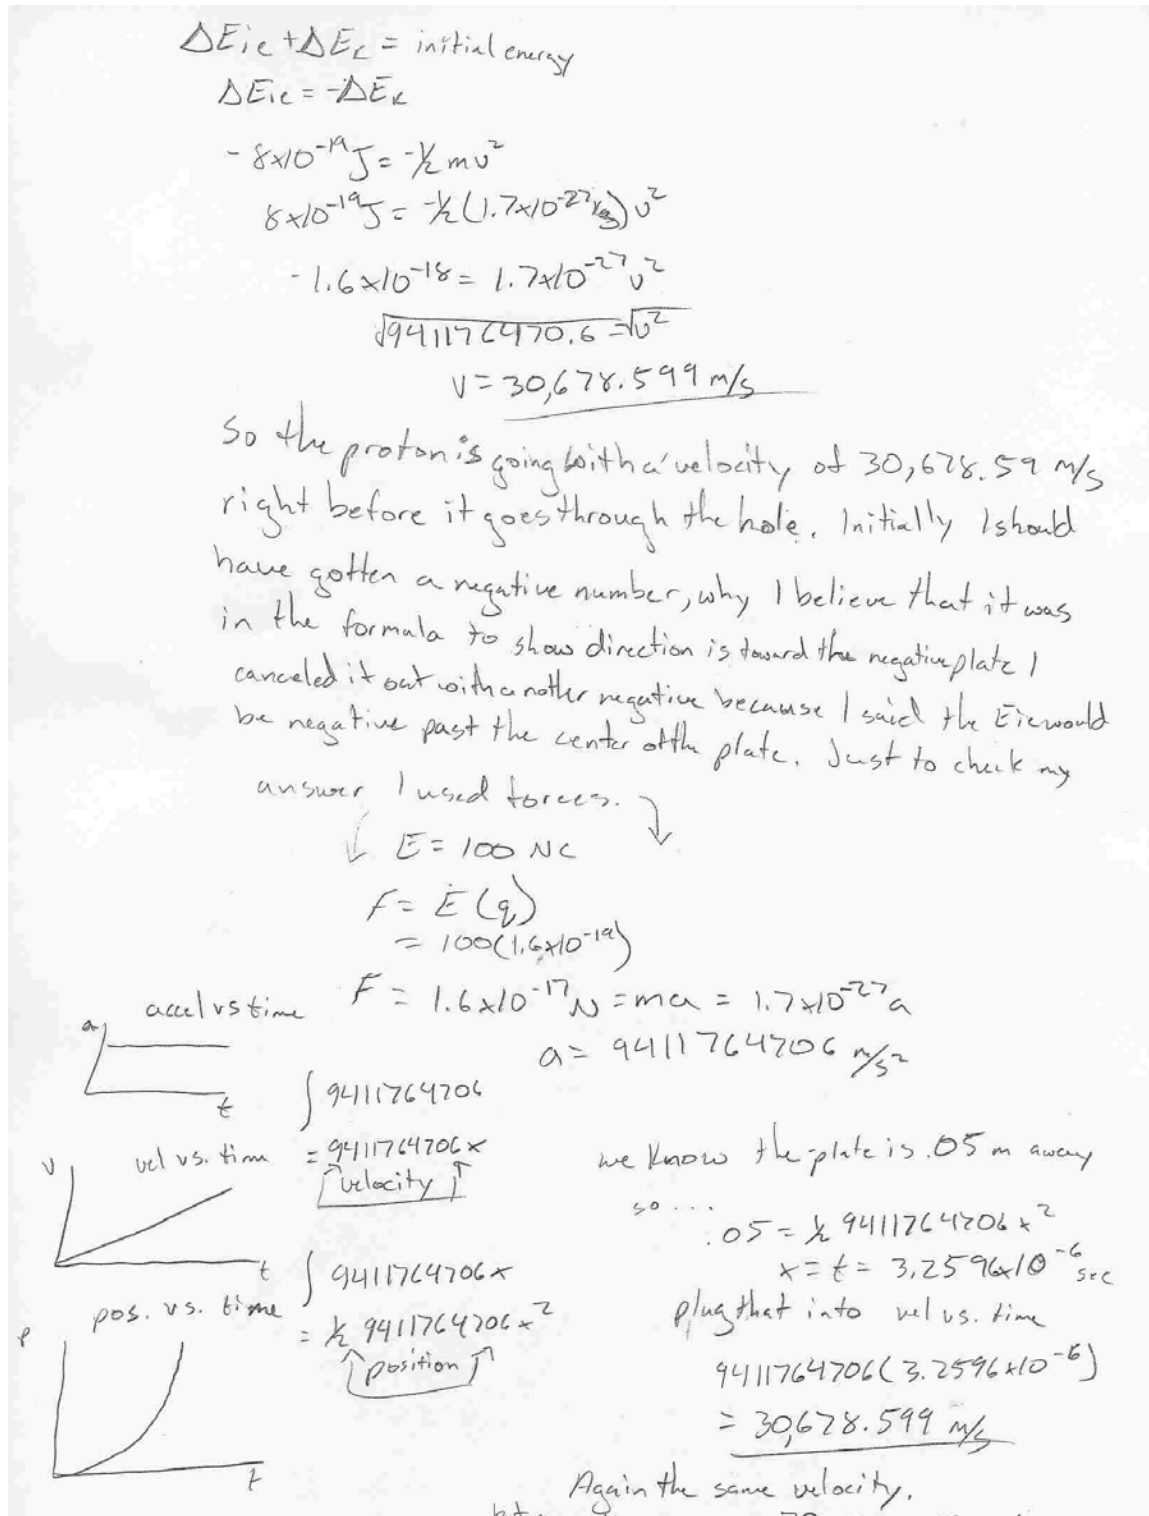 ΔEie + ΔEk = initial energy
ΔEie = -ΔEk
- 8x10⁻¹⁹ J = -½ mv²
8x10⁻¹⁹ J = -½ (1.7x10⁻²⁷ kg) v²
- 1.6x10⁻¹⁸ = 1.7x10⁻²⁷ v²
√941176470.6 = √v²
v = 30,678.599 m/s
So the proton is going with a velocity of 30,678.59 m/s
right before it goes through the hole. Initially I should
have gotten a negative number, why I believe that it was
in the formula to show direction is toward the negative plate I
canceled it out with another negative because I said the Eie would
be negative past the center of the plate. Just to check my
answer I used forces.
E = 100 NC
F = E(q)
= 100(1.6x10⁻¹⁹)
F = 1.6x10⁻¹⁷ N = ma = 1.7x10⁻²⁷ a
a = 9411764706 m/s²
accel vs time
a
t
∫ 9411764706
vel vs. time
= 9411764706x
velocity
v
t
∫ 9411764706x
pos. vs. time
= ½ 9411764706x²
position
P
t
we know the plate is .05 m away
so...
.05 = ½ 9411764706x²
x = t = 3.2596x10⁻⁶ sec
plug that into vel vs. time
9411764706(3.2596x10⁻⁶)
= 30,678.599 m/s
Again the same velocity.